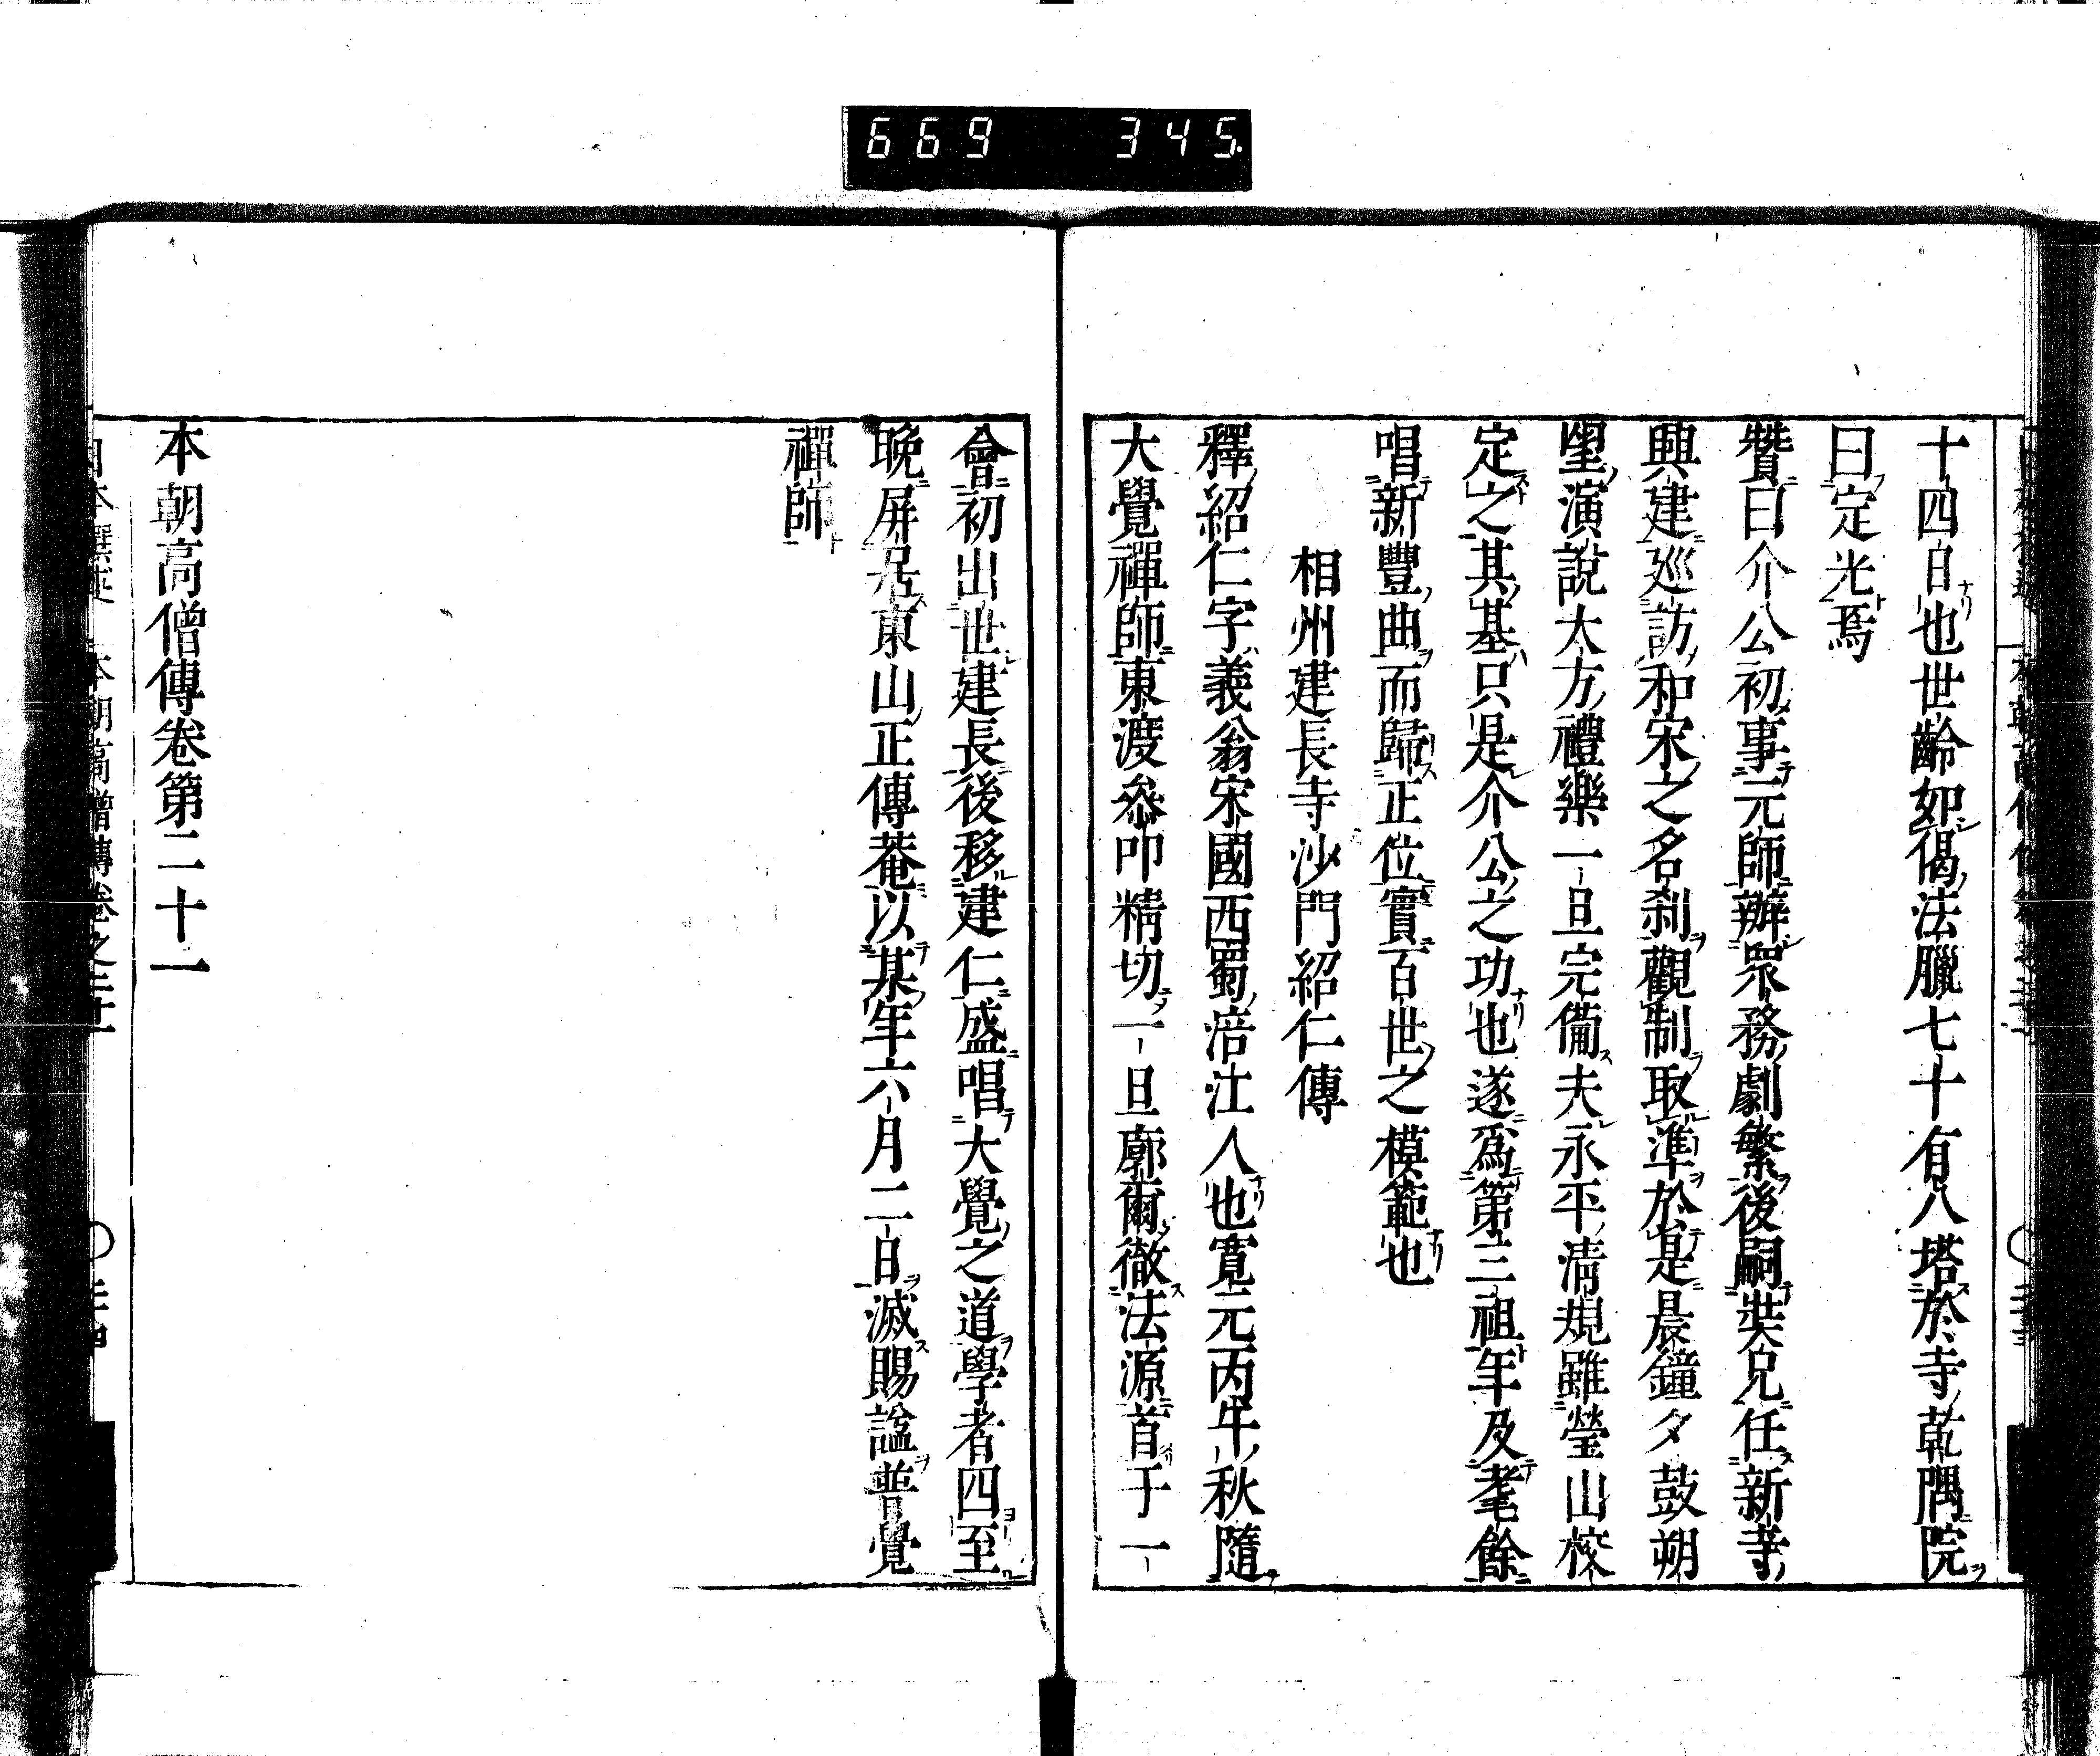 669 345
十四日也世齡如偈法臘七十有八塔於寺乾隅院
曰定光焉
贊曰介公初事元師辦眾務劇繁後嗣奘兄任新寺
興建巡訪和宋之名剎觀制取準於是晨鐘夕鼓朔
望演說大方禮樂一旦完備夫永平清規雖瑩山檢
定之其基只是介公之功也遂為第三祖年及耄餘
唱新豐曲而歸正位實百世之模範也
相州建長寺沙門紹仁傳
釋紹仁字義翁宋國西蜀涪江人也寬元丙午秋隨
大覺禪師東渡參叩精切一旦廓爾徹法源首于一
會初出世建長後移建仁盛唱大覺之道學者四至
晚屏居東山正傳菴以某年六月二日滅賜諡普覺
禪師
本朝高僧傳卷第二十一